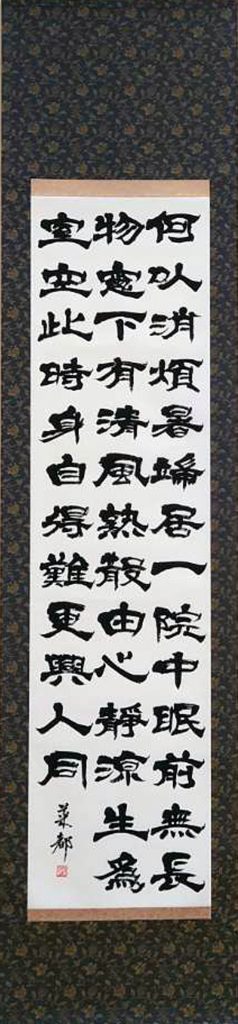 何以消煩暑端居一院中眼前無長
物窓下有清風熱散由心靜涼生為
室空此時身自得難更與人同